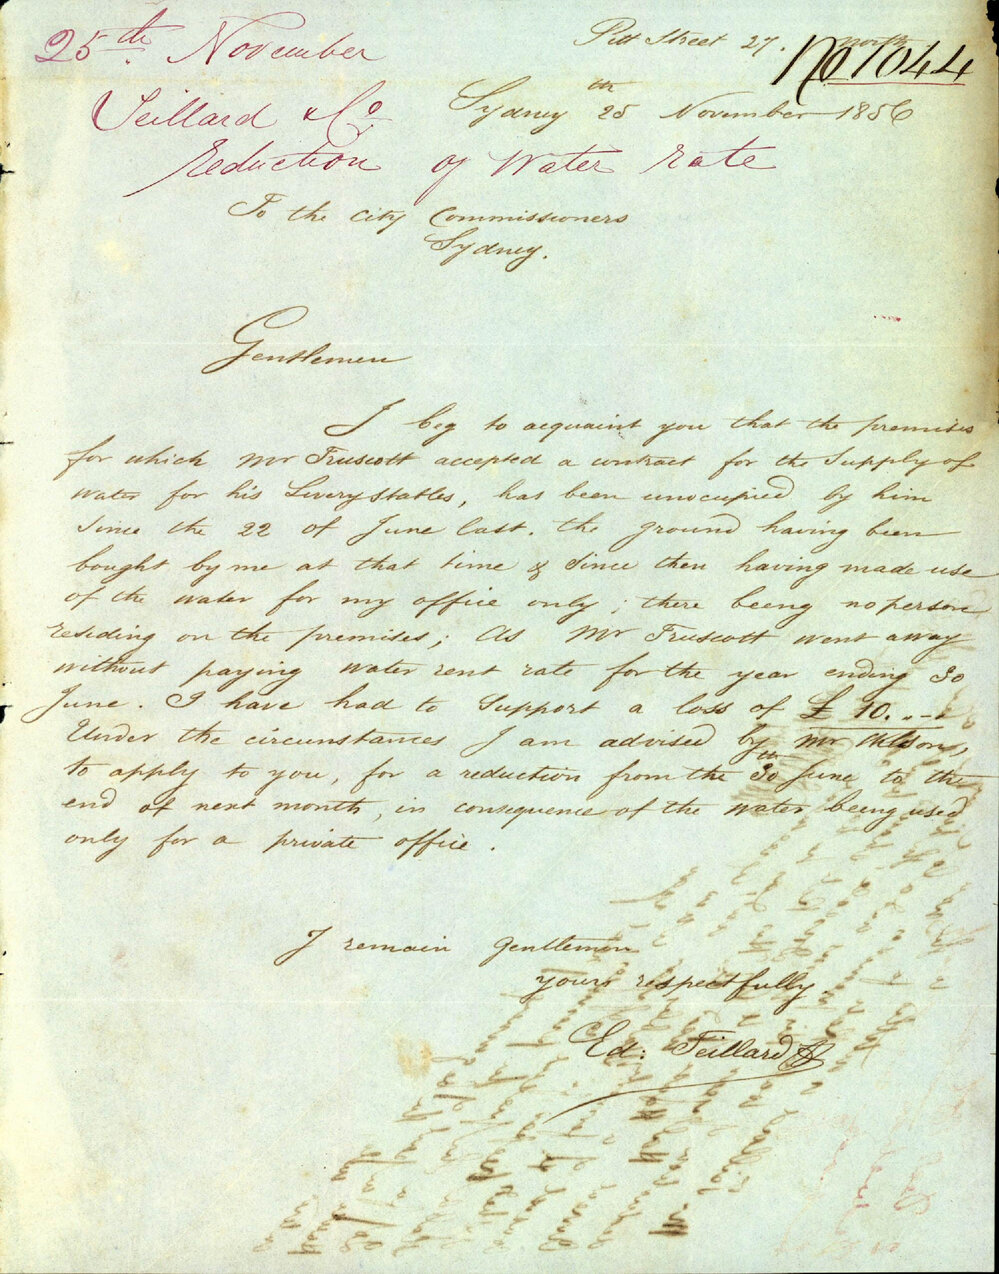 25th November
Pitt Street 27. north
No 1044
Teillard & Co
Sydney 25th November 1856
reduction of Water rate
To the City Commissioners
Sydney.
Gentlemen
I beg to acquaint you that the premises
for which Mr Truscott accepted a contract for the Supply of
water for his Livery Stables, has been unocupied by him
Since the 22 of June last. the ground having been
bought by me at that time & Since then having made use
of the water for my office only; there being no person
residing on the premises; As Mr Truscott went away
without paying water rent rate for the year ending 30
June. I have had to Support a loss of £ 10.
Under the circumstances I am advised by Mr
to apply to you, for a reduction from the 30th June to the
end of next month, in consequence of the water being used
only for a private office.
I remain Gentlemen
yours respectfully
Ed: Teillard